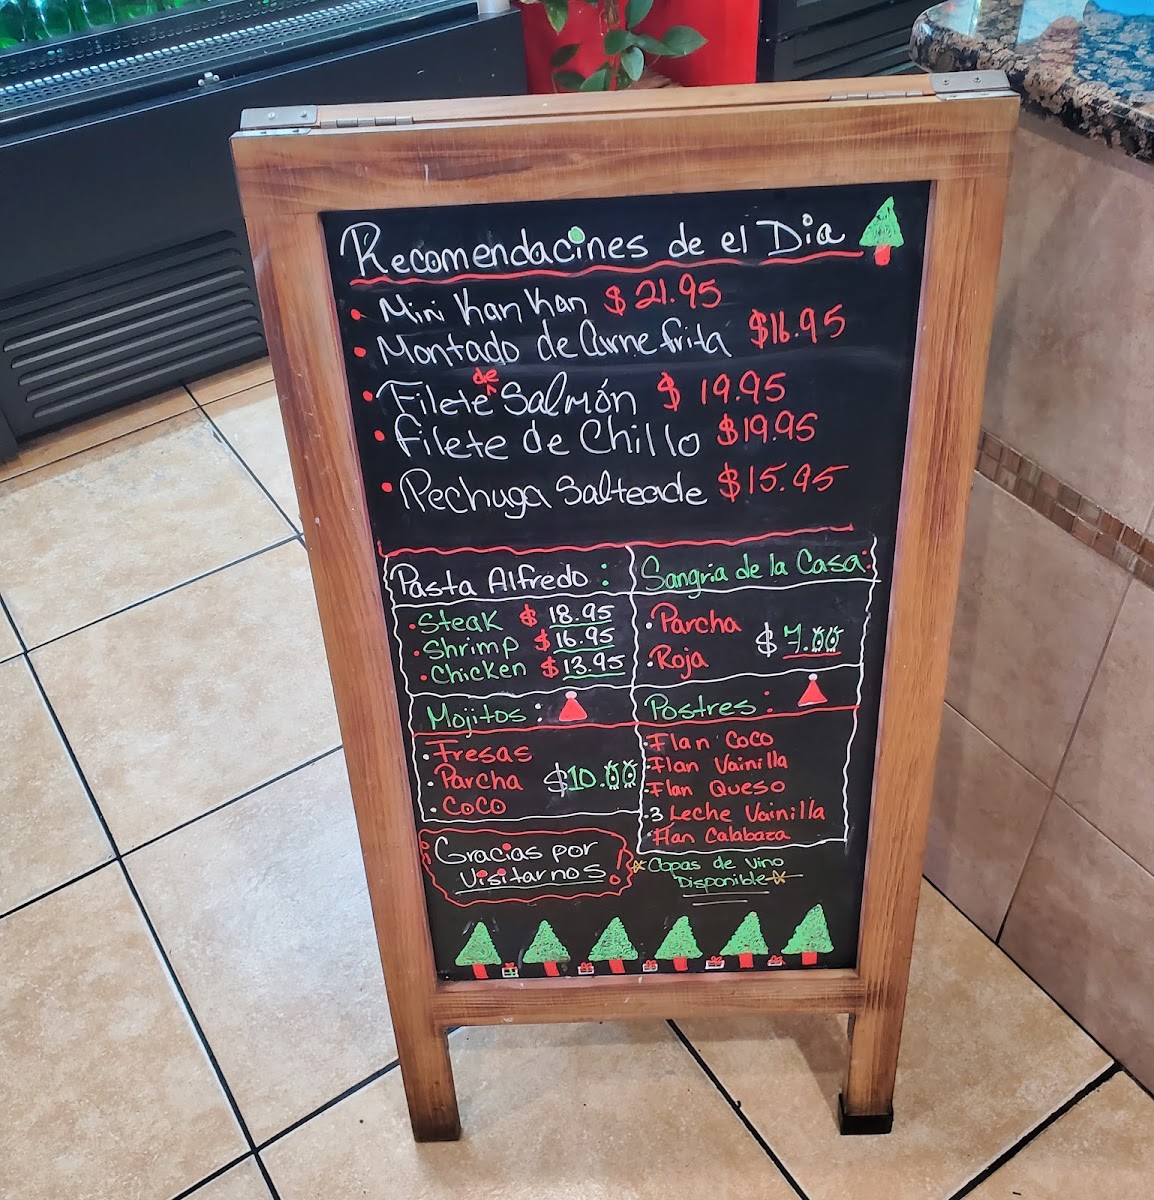 Recomendacines de el Dia
• Mini Kan Kan $21.95
• Montado de Carne frita $16.95
• Filete de Salmón $19.95
• Filete de Chillo $19.95
• Pechuga Salteade $15.95
Pasta Alfredo:
• Steak $18.95
• Shrimp $16.95
• Chicken $13.95
Sangria de la Casa:
• Parcha
$7.00
• Roja
Mojitos:
• Fresas
• Parcha $10.00
• Coco
Postres:
• Flan Coco
• Flan Vainilla
• Flan Queso
• 3 Leche Vainilla
• Flan Calabaza
¡Gracias por
Visitarnos!
Copas de Vino
Disponible